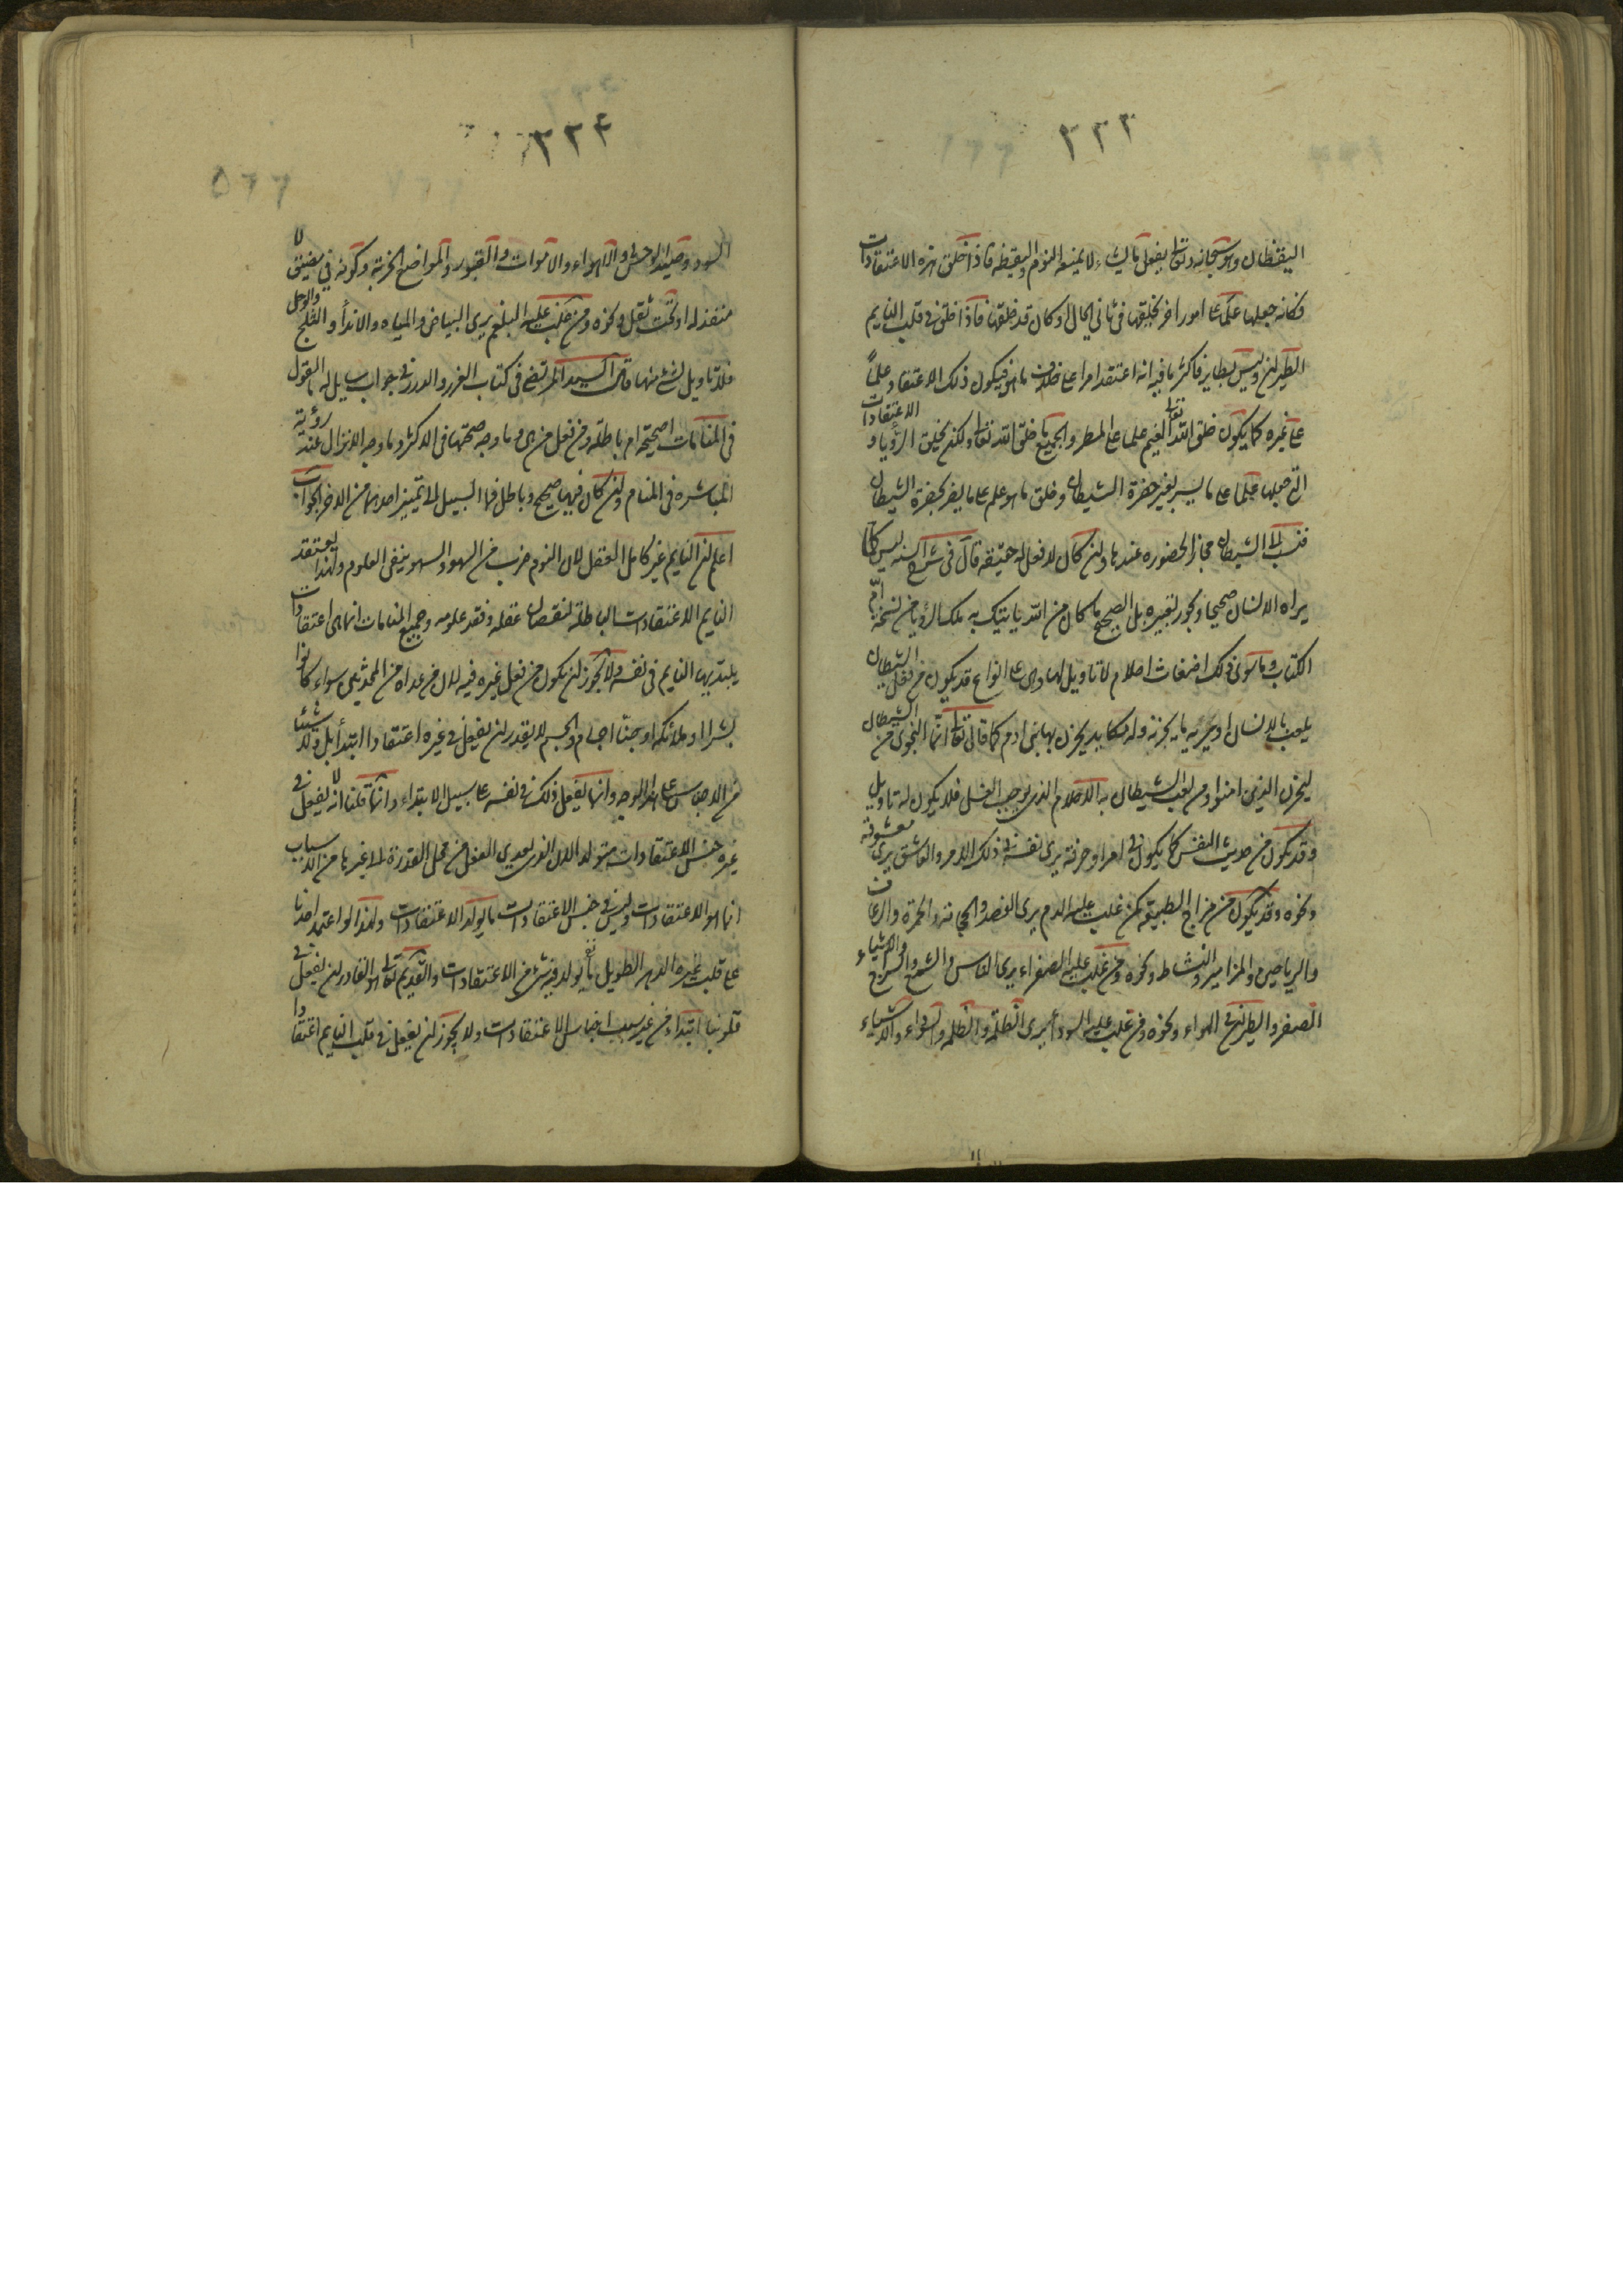 ٣٣٣
اليقظان وهو سبحانه وتعالى يفعل ما يشاء لا يمنعه النوم واليقظة فاذا خلق هذه الاعتقادات
فكانه جعلها علما على امور اخر يخلقها في ثاني الحال او كان قد خلقها فاذا خلق في قلب النايم
الطيران وليس بطاير فاكثر ما فيه انه اعتقد امرا على خلاف ما هو فيكون ذلك الاعتقاد علماً
على غيره كما يكون خلق الله تعالى الغيم علما على المطر والجميع خلق الله تعالى ولكن يخلق الرؤيا و الاعتقادات
التي جعلها علما على ما يسر بغير حضرة الشيطان وخلق ما هو علم على ما يضر بحضرة الشيطان
فنسب الى الشيطان مجازا لحضوره عندها وان كان لا فعل له حقيقة قال في شرح السنه ليس كلما
يراه الانسان صحيحا ويجوز تعبيره بل الصحيح ما كان من الله يأتيك به ملك الرؤيا من نسخة امّ
الكتاب وما سوى ذلك اضغاث احلام لا تاويل لها وهي على انواع قد يكون من فعل الشيطان
يلعب بالانسان او يريه ما يحزنه وله مكايد يحزن بها بني ادم كما قال تعالى انّما النجوى من الشيطان
ليحزن الذين امنوا ومن لعب الشيطان به الاحلام الذي يوجب الغسل فلا يكون له تاويل
وقد يكون من حديث النفس كما يكون في امر او حرفة يرى نفسه في ذلك الامر والعاشق يرى معشوقه
ونحوه وقد يكون من مزاج الطبيعة كمن غلب عليه الدم يرى الفصد والحجامة والحمرة والرعاف
والرياحين والمزامير والنشاط ونحوه ومن غلب عليه الصفراء يرى النار والشمع والسرج والاشياء
الصفر والطيران في الهواء ونحوه ومن غلب عليه السوداء يرى الظلمة والسواد والاشياء
٣٣٤
السود وصيد الوحش والاهواء والاموات والقبور والمواضع الخربة وكونه في مضيق لا
منفذ له او تحت ثقل ونحوه ومن غلب عليه البلغم يرى البياض والمياه والانداء والثلج والوحل
فلا تاويل لشئ منها وقال السيد المرتضى في كتاب الغرر والدرر في جواب سايل سأله ما القول
في المنامات اصحيحة ام باطلة ومن فعل من هي وما وجه صحتها في الاكثر وما وجه الانزال عند رؤية
المباشره في المنام وان كان فيها صحيح وباطل فما السبيل الى تمييز احدهما من الاخر الجواب
اعلم ان النايم غير كامل العقل لان النوم ضرب من السهو والسهو ينفي العلوم ولهذا يعتقد
النايم الاعتقادات الباطلة لنقصان عقله وفقد علومه وجميع المنامات انما هي اعتقادات
يبتديها النايم في نفسه ولا يجوز ان يكون من فعل غيره فيه لان من عداه من المحدثين سواء كانوا
بشرا او ملائكة او جنّا اجسام والجسم لا يقدر ان يفعل في غيره اعتقادا ابتدأ بل ولا شيئا
من الاجناس على هذا الوجه وانما يفعل ذلك في نفسه على سبيل الابتداء وانما قلنا انه لا يفعل في
غيره جنس الاعتقادات متولدا لان الذي يعدي الفعل من محل القدرة الى غيرها من الاسباب
انما هو الاعتمادات وليس في جنس الاعتمادات ما يولد الاعتقادات ولهذا لو اعتمد احدنا
على قلب غيره الدهر الطويل ما تولد فيه شئ من الاعتقادات والقديم تعالى هو القادر ان يفعل في
قلوبنا ابتداء من غير سبب اجناس الاعتقادات ولا يجوز ان يفعل في قلب النايم اعتقادا